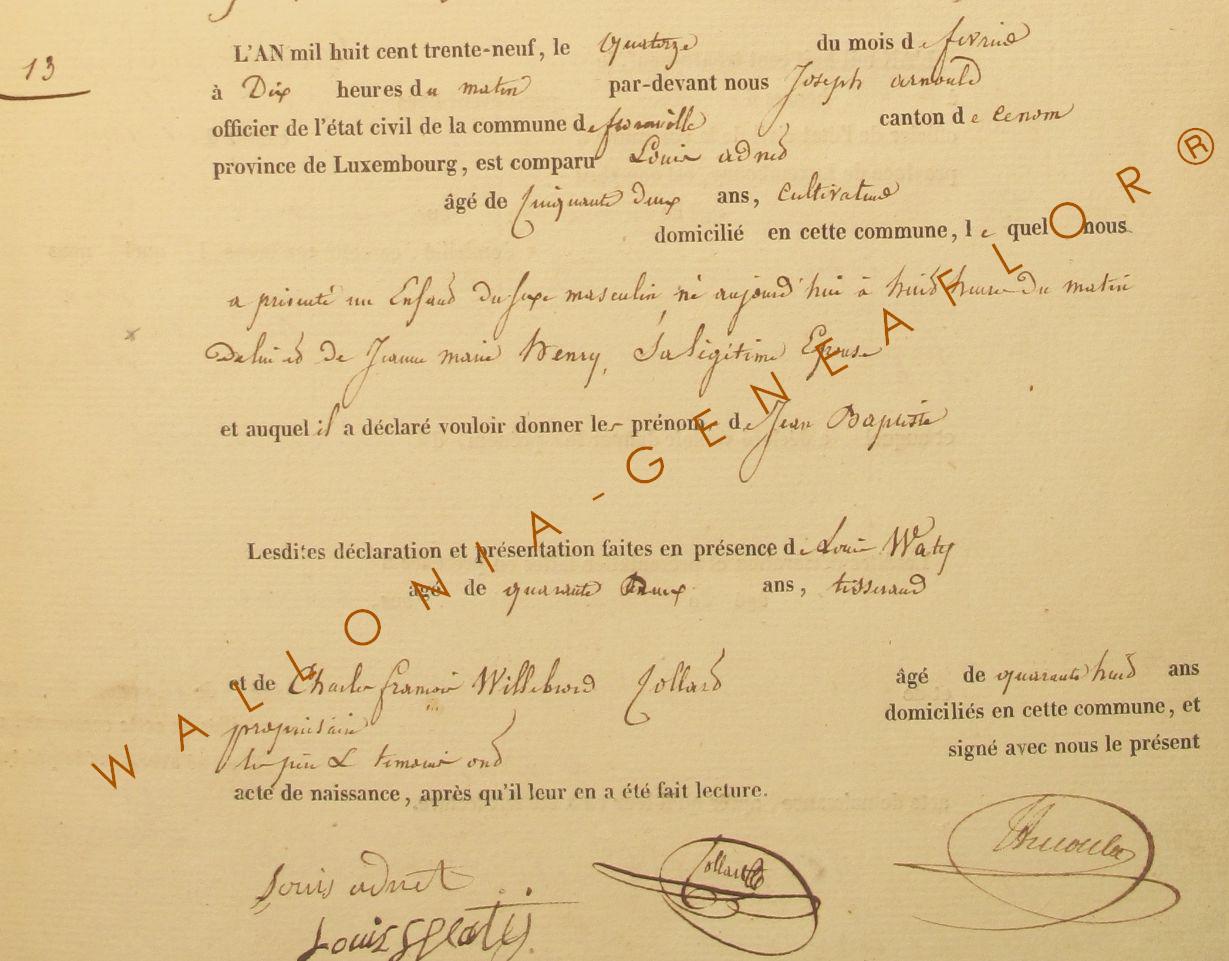 13
L'AN mil huit cent trente-neuf, le quatorze du mois de fevrier
à Dix heures du matin par-devant nous Joseph arnould
officier de l'état civil de la commune de canton de
province de Luxembourg, est comparu Louis adnet
âgé de Cinquante deux ans, Cultivateur
domicilié en cette commune, le quel nous
a présenté un Enfant du sexe masculin né aujourd'hui à huit heures du matin
de lui et de Jeanne marie Henry, Sa légitime Epouse
et auquel il a déclaré vouloir donner les prénoms de Jean Baptiste
Lesdites déclaration et présentation faites en présence de Louis Waty
âgé de quarante Deux ans, tisserand
et de Charles francois Willebrord Collard âgé de quarante huit ans
propriétaire domiciliés en cette commune, et
les père & temoins ont signé avec nous le présent
acte de naissance, après qu'il leur en a été fait lecture.
Louis adnet Collard Arnould
Louis Waty
WALLONIA-GENEAFLOR®